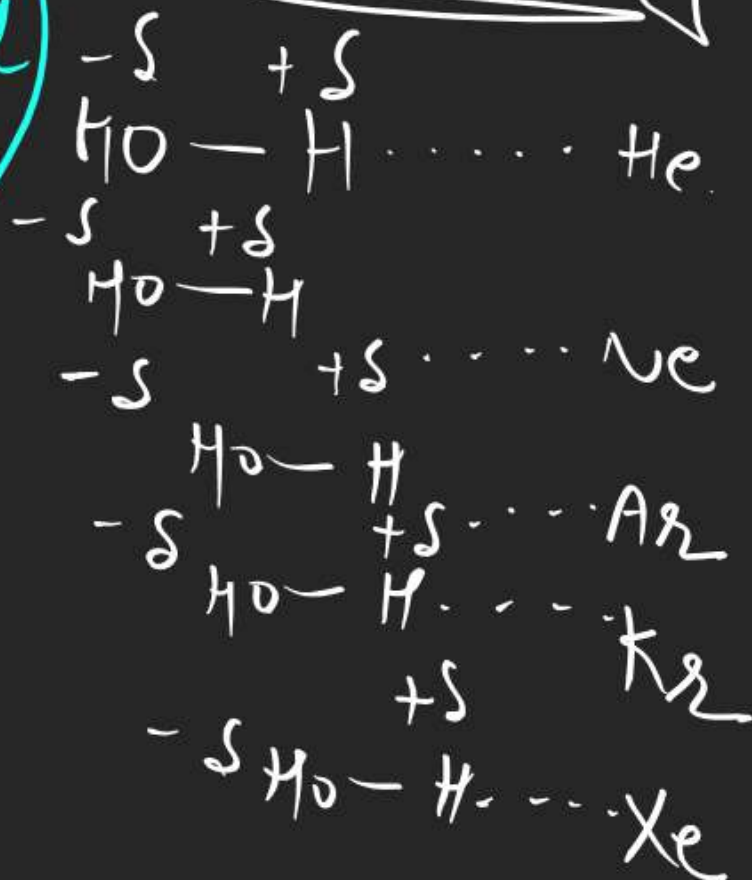 -δ +δ
HO — H ..... He
-δ +δ
HO — H
-δ +δ ..... Ne
HO — H
-δ +δ ..... Ar
HO — H ..... Kr
+δ
-δ HO — H ..... Xe